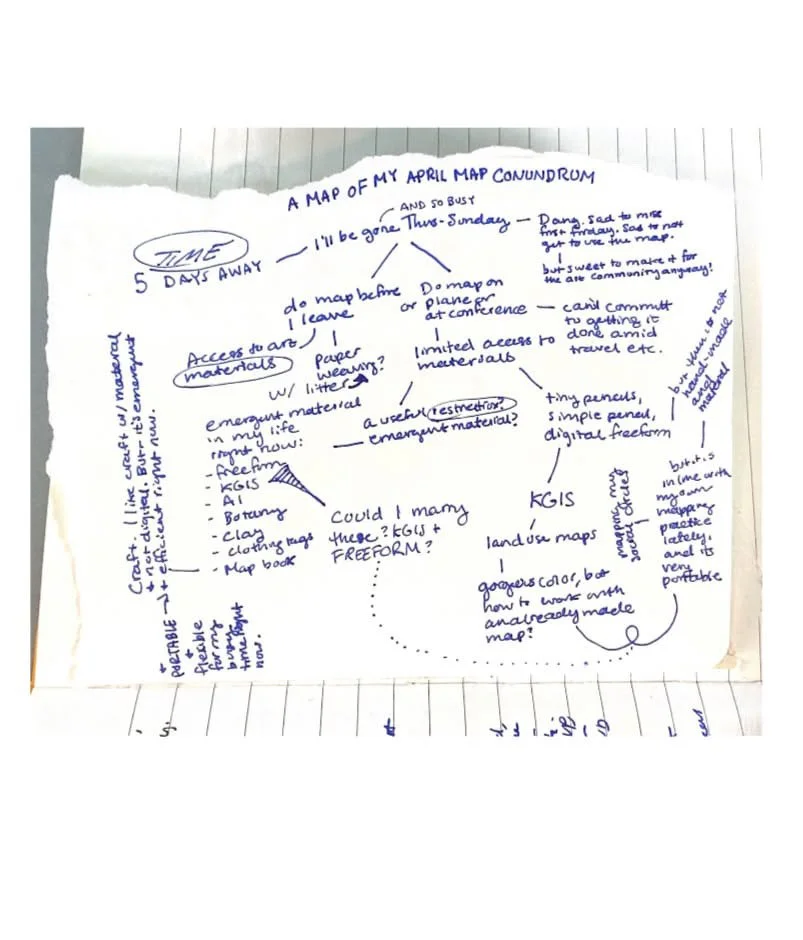 A MAP OF MY APRIL MAP CONUNDRUM
AND SO BUSY
I'll be gone Thurs-Sunday
TIME
5 DAYS AWAY
Dang. Sad to miss
first friday. Sad to not
get to use the map.
but sweet to make it for
the art community anyway!
do map before
I leave
or
Do map on
plane or
at conference
can I commit
to getting it
done amid
travel etc.
Access to art
materials
paper
weaving?
w/ litter
limited access to
materials
a useful restriction?
emergent material?
emergent material
in my life
right now:
- freeform
- KGIS
- AI
- Botany
- Clay
- clothing tags
- Map book
Craft. I like craft w/ material
+ not digital. But it's emergent
+ efficient right now.
+ PORTABLE
+
flexible
for my
busy
time right
now.
Could I marry
these? KGIS +
FREEFORM?
tiny pencils,
simple pencil,
digital freeform
but then it's not
hand-made
and
material
but it is
in line with
my own
mapping
practice
lately,
and it's
very
portable
mapping my
social circles
KGIS
land use maps
gorgeous color, but
how to work with
an already made
map?